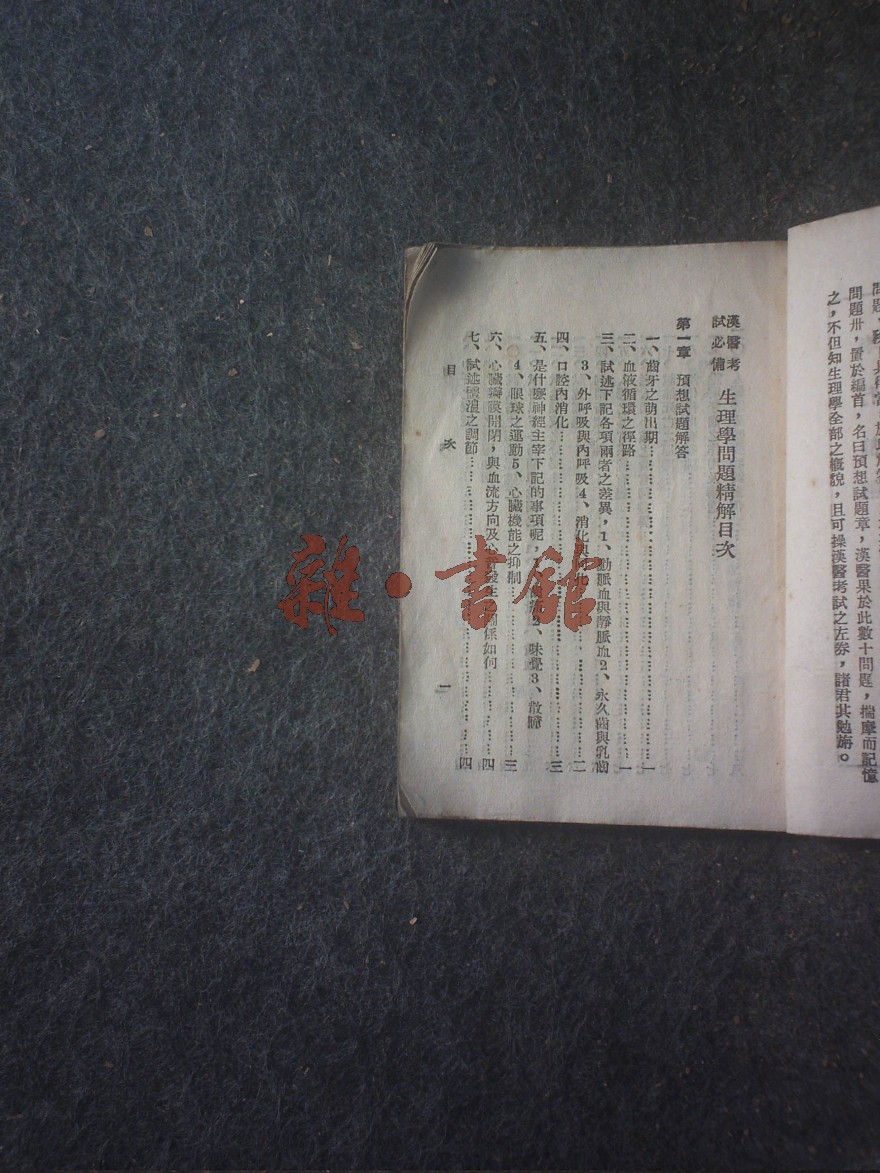 問題卅，置於編首，名曰預想試題章，漢醫果於此數十問題，揣摩而記憶
之，不但知生理學全部之概貌，且可操漢醫考試之左券，諸君其勉旃。
漢醫考試必備 生理學問題精解目次
第一章 預想試題解答
一、齒牙之萌出期……一
二、血液循環之徑路……一
三、試述下記各項兩者之差異，1、動脈血與靜脈血2、永久齒與乳齒
3、外呼吸與內呼吸4、消化與……二
四、口腔內消化……三
五、是什麼神經主宰下記的事項呢，2、味覺3、散瞳
4、眼球之運動5、心臟機能之抑制……三
六、心臟瓣膜開閉，與血流方向及心音發生之關係如何……四
七、試述體溫之調節……四
目次
一
雜·書館